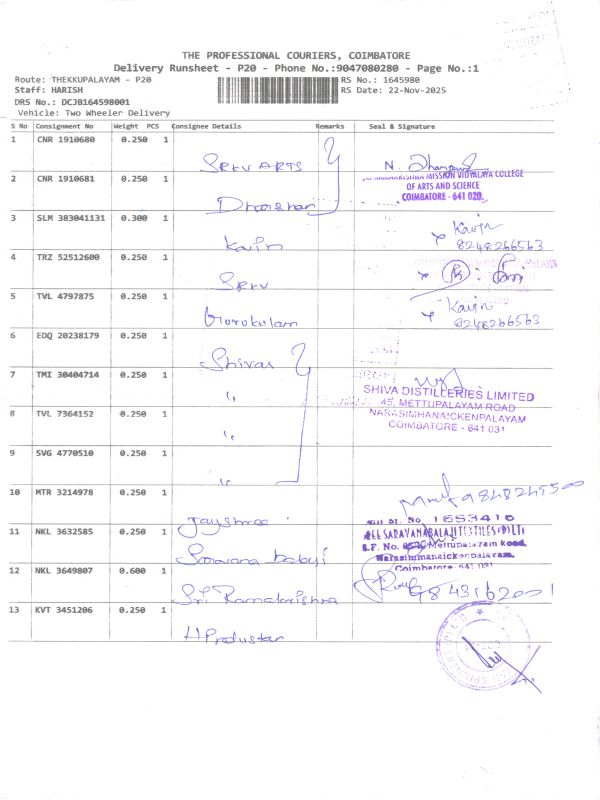 THE PROFESSIONAL COURIERS, COIMBATORE
Delivery Runsheet - P20 - Phone No.:9047080280 - Page No.:1
Route: THEKKUPALAYAM - P20
RS No.: 1645980
Staff: HARISH
RS Date: 22-Nov-2025
DRS No.: DCJB164598001
Vehicle: Two Wheeler Delivery
S No Consignment No Weight PCS Consignee Details Remarks Seal & Signature
1 CNR 1910680 0.250 1
SRKV ARTS
2 CNR 1910681 0.250 1
MISSION VIDYALAYA COLLEGE
OF ARTS AND SCIENCE
COIMBATORE - 641 020.
3 SLM 383041131 0.300 1
Kavin
Kavin
8248266563
4 TRZ 52512600 0.250 1
SRKV
5 TVL 4797875 0.250 1
Gurukulam
Kavin
8248266563
6 EDQ 20238179 0.250 1
Shivas
7 TMI 30404714 0.250 1
"
SHIVA DISTILLERIES LIMITED
45, METTUPALAYAM ROAD
NARASIMHANAICKENPALAYAM
COIMBATORE - 641 031
8 TVL 7364152 0.250 1
"
9 SVG 4770510 0.250 1
"
10 MTR 3214978 0.250 1
Jayshree
1653410
11 NKL 3632585 0.250 1
SARAVANABALAJI TEXTILES (P) LTD
S.F. No. Mettupalayam Road,
Narasimmanaickenpalayam,
Coimbatore- 641 031
12 NKL 3649807 0.600 1
Sri Ramakrishna
9843162001
13 KVT 3451206 0.250 1